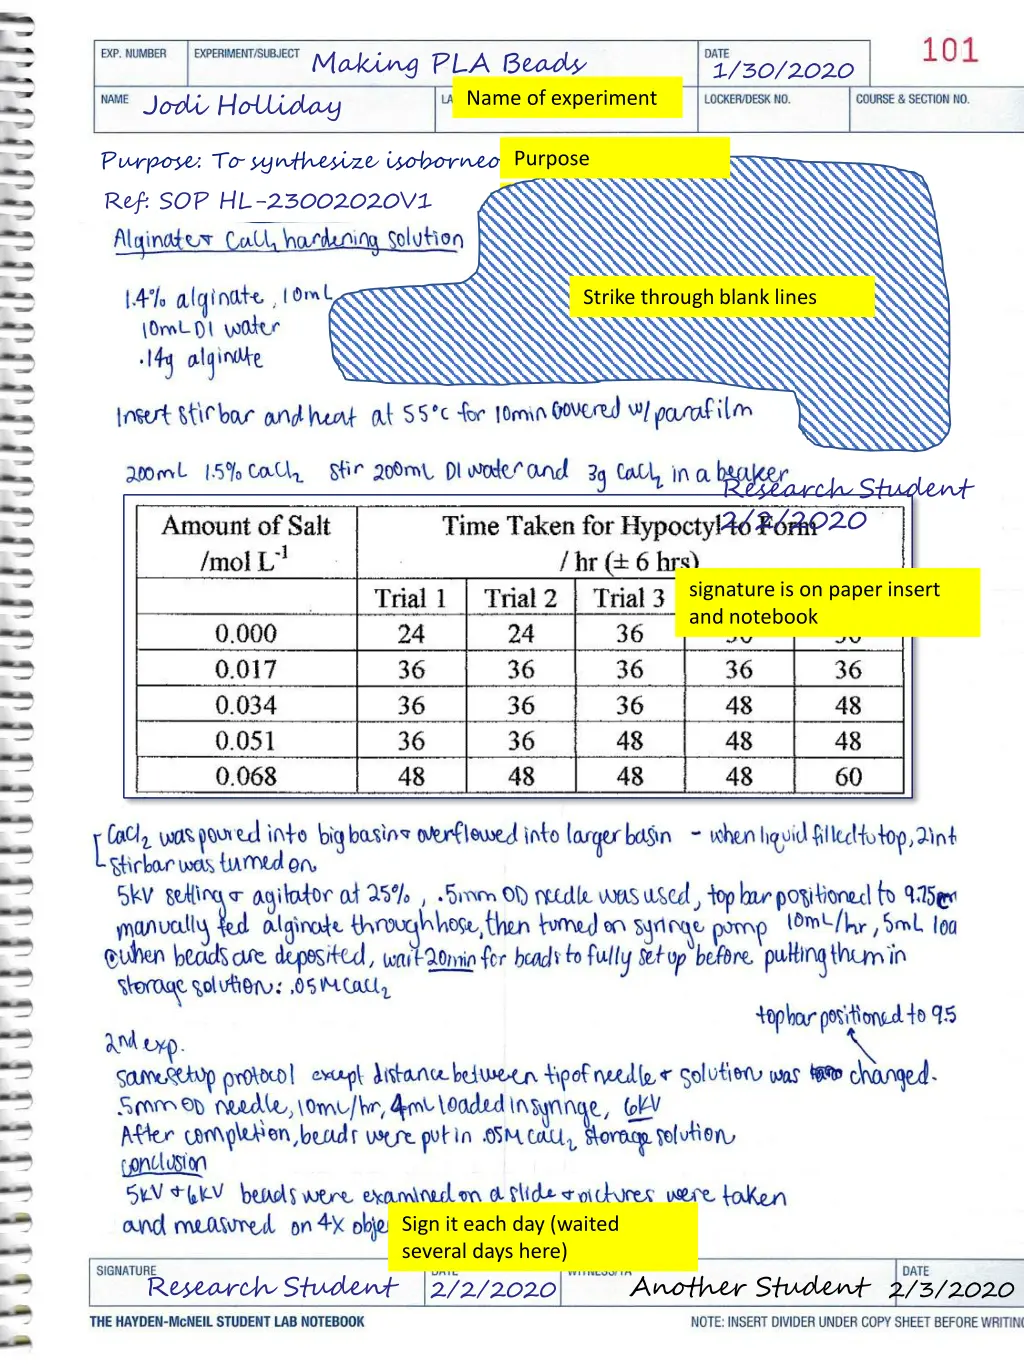 EXP. NUMBER EXPERIMENT/SUBJECT Making PLA Beads DATE 1/30/2020 101
NAME Jodi Holliday LA Name of experiment LOCKER/DESK NO. COURSE & SECTION NO.
Purpose: To synthesize isoborneo Purpose
Ref: SOP HL-23002020V1
Alginate & CaCl2 hardening solution
1.4% alginate, 10mL
Strike through blank lines
10mL DI water
.14g alginate
Insert stirbar and heat at 55°C for 10min covered w/ parafilm
200mL 1.5% CaCl2 stir 200mL DI water and 3g CaCl2 in a beaker
Research Student
2/2/2020
Amount of Salt /mol L-1 Time Taken for Hypoctyl to Form / hr (± 6 hrs)
Trial 1 Trial 2 Trial 3
signature is on paper insert
and notebook
0.000 24 24 36
0.017 36 36 36 36 36
0.034 36 36 36 48 48
0.051 36 36 48 48 48
0.068 48 48 48 48 60
CaCl2 was poured into big basin & overflowed into larger basin - when liquid filled to top, 2 int
stirbar was turned on
5kV setting & agitator at 25%, .5mm OD needle was used, top bar positioned to 9.75cm
manually fed alginate through hose, then turned on syringe pomp 10mL/hr, 5mL loa
when beads are deposited, wait 20min for beads to fully set up before putting them in
storage solution: .05M CaCl2
top bar positioned to 9.5
2nd exp.
same setup protocol except distance between tip of needle & solution was changed.
.5mm OD needle, 10mL/hr, 4mL loaded in syringe, 6kV
After completion, beads were put in .05M CaCl2 storage solution
conclusion
5kV & 6kV beads were examined on a slide & pictures were taken
and measured on 4X obje
Sign it each day (waited
several days here)
SIGNATURE Research Student DATE 2/2/2020 WITNESS/TA Another Student DATE 2/3/2020
THE HAYDEN-McNEIL STUDENT LAB NOTEBOOK NOTE: INSERT DIVIDER UNDER COPY SHEET BEFORE WRITING